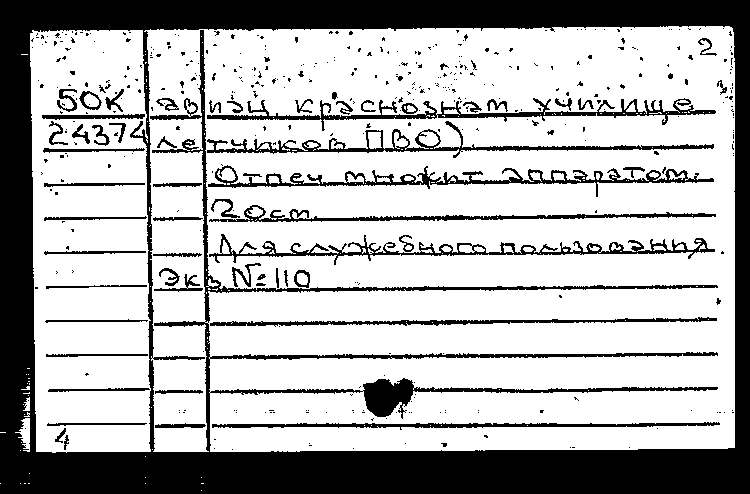 2
50К авиац. краснознам. училище
24374 летчиков ПВО)
Отпеч множит аппаратом.
20 ст.
Для служебного пользования
Экз. № 110
4